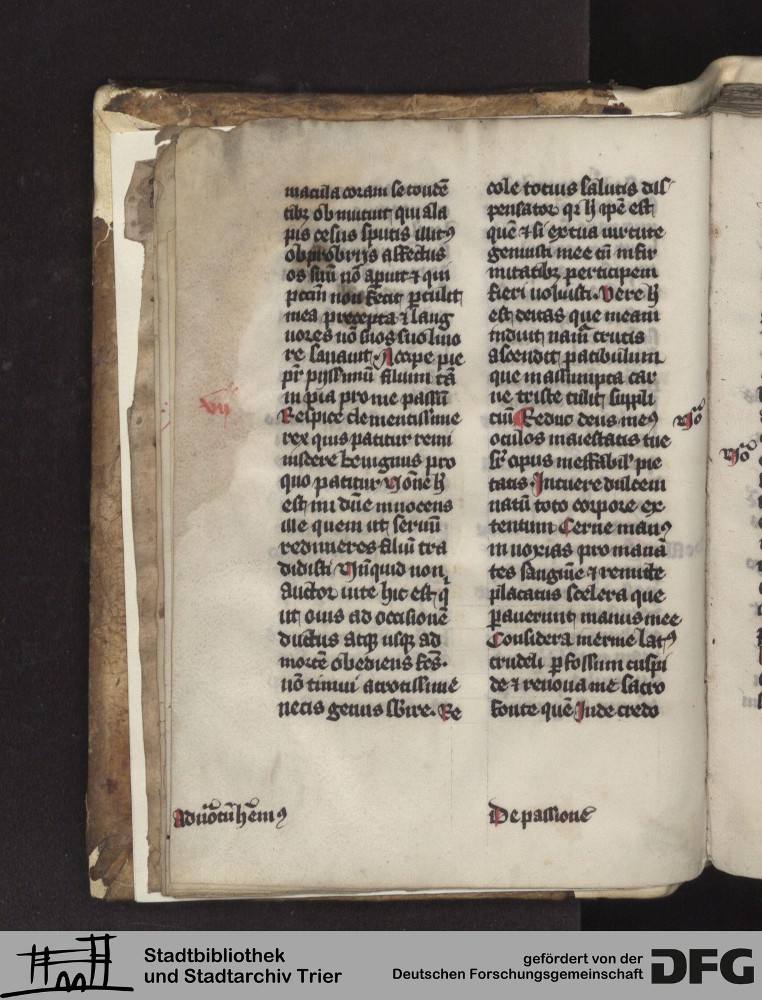 macula coram se tondē
tibꝫ ob mutuit qui ala
pis cesus sputis illitꝰ
obprobrijs affectus
os suū nō aperuit ⁊ qui
pctm̄ non fecit pertulit
mea precepta ⁊ lang
uores nō suos suo liuo
re sanauit Accipe pie
pr̄ pijssimū filium tā
impia pro me passū
Respice clementissime
rex quis patitur remi
niscere benignus pro
quo patitur Nonne h̄
est mi dn̄e innocens
ille quem ut seruū
redimeres filiū tra
didisti Nūquid non
auctor uite hic est q̄
ut ouis ad occisionē
ductus atqꝫ usqꝫ ad
mortē obediens fc̄s.
nō timuit atrocissime
necis genus sbire. Re
cole totius salutis dis
pensator qr h̄ ip̄e est
quē ⁊ si ex tua uirtute
genuisti mee tn̄ infir
mitatibꝫ perticipem
fieri uoluisti. Vere h̄
est deitas que meam
induit naturā crucis
ascendit patibulum
que in assumpta car
ne triste tulit suppli
ciū Reduc deus meꝰ
oculos maiestatis tue
sr̄ opus ineffabil' pie
tatis. Intuere dulcem
natū toto corpore ex
tentum Cerne manꝰ
innoxias pro manā
tes sanguine ⁊ remitte
placatus scelera que
patrauerunt manus mee
Considera inerme latꝰ
crudeli perfossum cuspi
de ⁊ renoua me sacro
fonte quē Inde credo
De passione
Stadtbibliothek
und Stadtarchiv Trier
gefördert von der
Deutschen Forschungsgemeinschaft
DFG